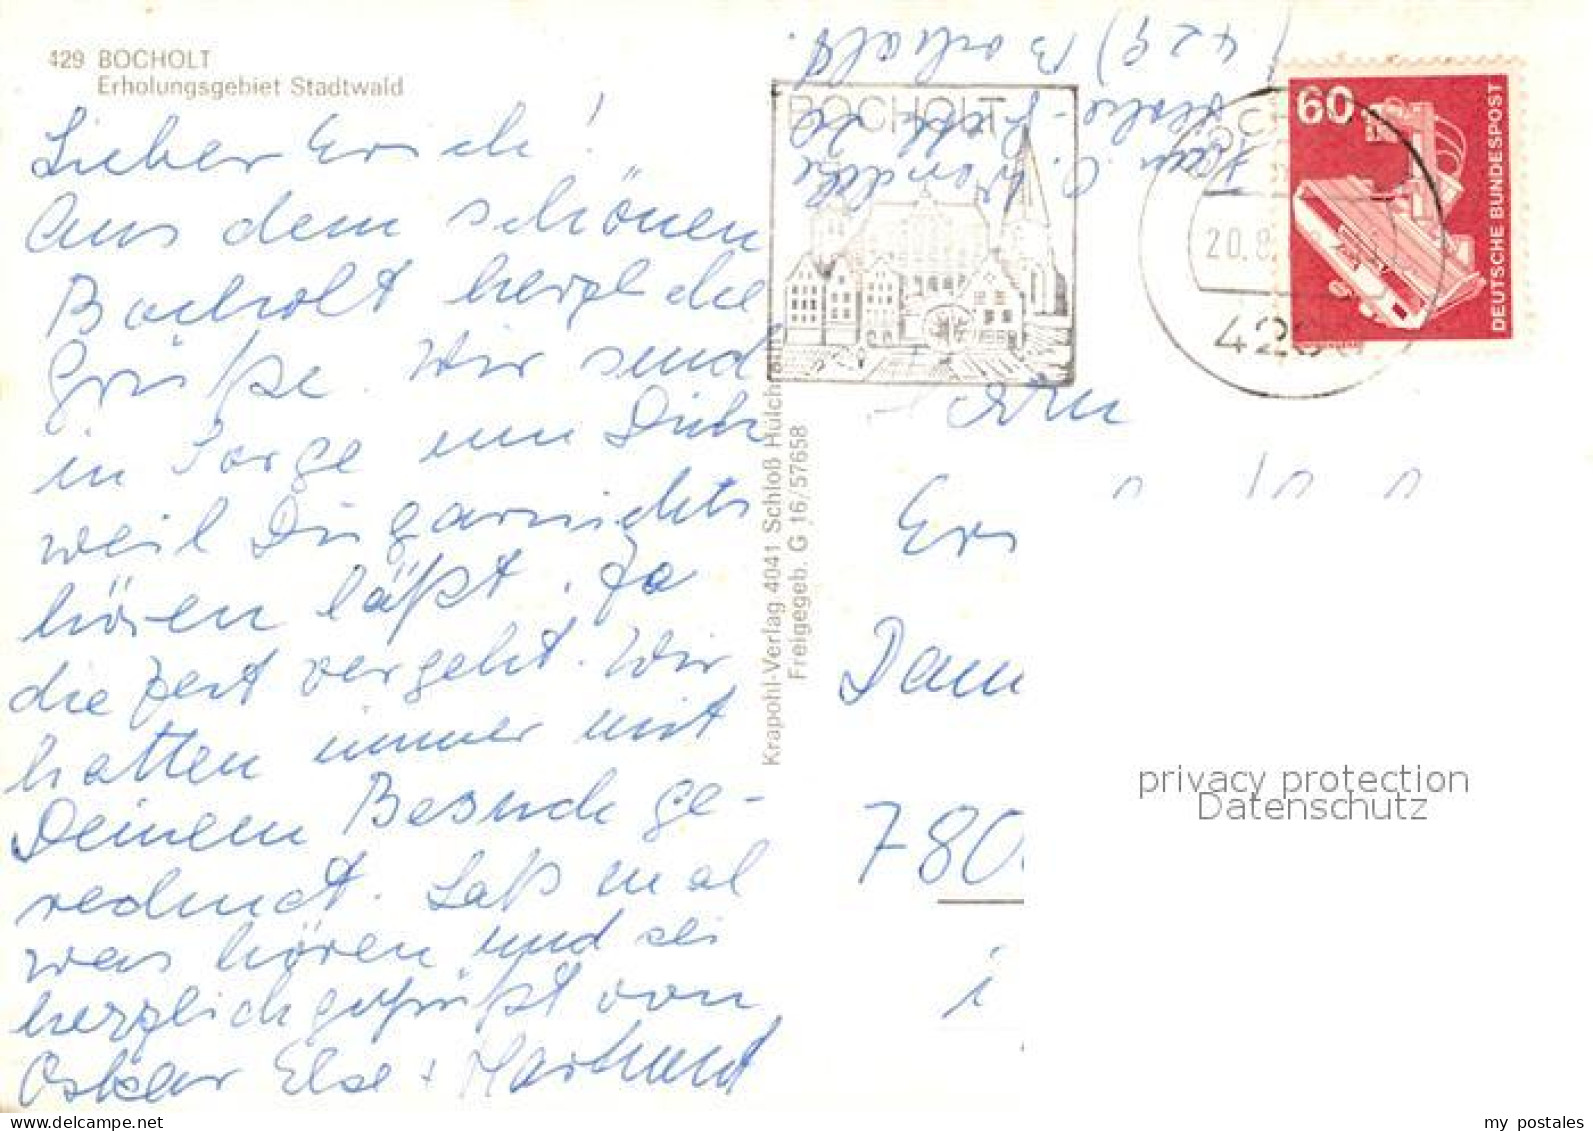 429 BOCHOLT
Erholungsgebiet Stadtwald
Lieber Erich!
Aus dem schönen
Bocholt herzliche
Grüße. Wir sind
in Sorge um Dich
weil Du garnichts
hören läßt. Ja
die Zeit vergeht. Wir
hatten immer mit
Deinem Besuch ge-
rechnet. Laß mal
was hören und sei
herzlich gegrüßt von
Oskar Else +
Krapohl-Verlag 4041 Schloß Hülchrath
Freigegeb. G 16/57658
429) Bocholt.
BOCHOLT
20.8.
60
DEUTSCHE BUNDESPOST
Herrn
780
i
privacy protection
Datenschutz
my postales